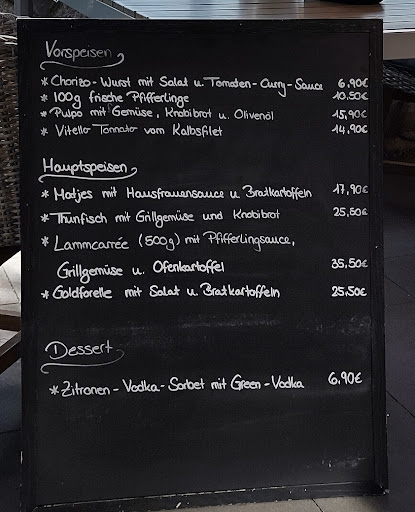 Vorspeisen
* Chorizo-Wurst mit Salat u. Tomaten-Curry-Sauce 6,90€
* 100g frische Pfifferlinge 10,50€
* Pulpo mit Gemüse, Knobibrot u. Olivenöl 15,90€
* Vitello Tonnato vom Kalbsfilet 14,90€
Hauptspeisen
* Matjes mit Hausfrauensauce u. Bratkartoffeln 17,90€
* Thunfisch mit Grillgemüse und Knobibrot 25,50€
* Lammcarrée (500g) mit Pfifferlingsauce,
Grillgemüse u. Ofenkartoffel 35,50€
* Goldforelle mit Salat u. Bratkartoffeln 25,50€
Dessert
* Zitronen-Vodka-Sorbet mit Green-Vodka 6,90€